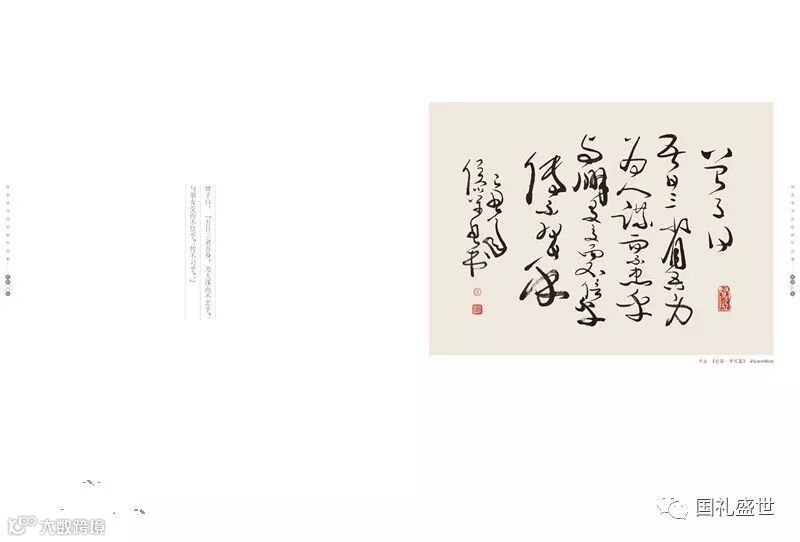 曾子曰：「吾日三省吾身，为人谋而不忠乎？
与朋友交而不信乎？传不习乎？」
曾子曰
吾日三省吾身
为人谋而不忠乎
与朋友交而不信乎
传不习乎
书法 《论语·学而篇》
国礼盛世
大数跨境